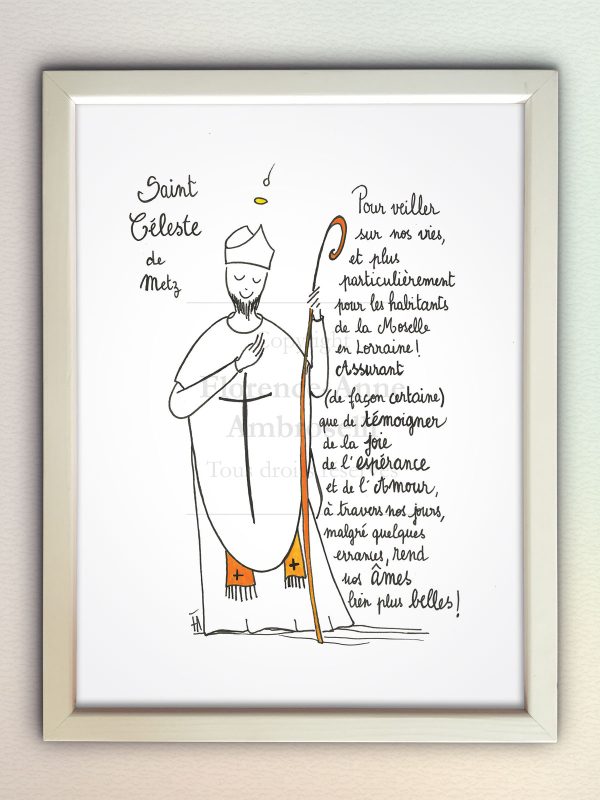 Saint
Céleste
de
Metz
Pour veiller
sur nos vies,
et plus
particulièrement
pour les habitants
de la Moselle
en Lorraine!
Assurant
(de façon certaine)
que de témoigner
de la joie
de l'espérance
et de l'Amour,
à travers nos jours,
malgré quelques
errances, rend
nos âmes
bien plus belles!
Copyright
Florence-Anne
Ambroselli
Tous droits réservés